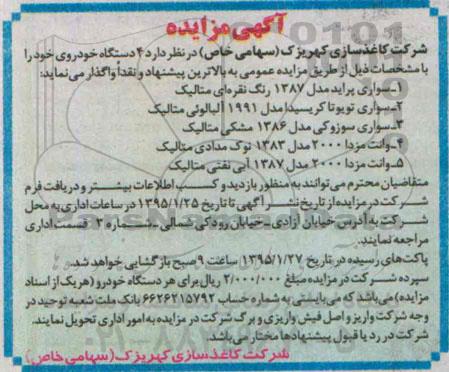 آگهی مزایده
شرکت کاغذسازی کهریزک (سهامی خاص) در نظر دارد ۴ دستگاه خودروی خود را
با مشخصات ذیل از طریق مزایده عمومی به بالاترین پیشنهاد و نقداً واگذار می نماید:
۱ـ سواری پراید مدل ۱۳۸۷ رنگ نقره ای متالیک
۲ـ سواری تویوتا کریسیدا مدل ۱۹۹۱ آلبالوئی متالیک
۳ـ سواری سوزوکی مدل ۱۳۸۶ مشکی متالیک
۴ـ وانت مزدا ۲۰۰۰ مدل ۱۳۸۳ نوک مدادی متالیک
۵ـ وانت مزدا ۲۰۰۰ مدل ۱۳۸۷ آبی نفتی متالیک
متقاضیان محترم می توانند به منظور بازدید و کسب اطلاعات بیشتر و دریافت فرم
شرکت در مزایده از تاریخ نشر آگهی تا تاریخ ۱۳۹۵/۱/۲۵ در ساعات اداری به محل
شرکت به آدرس خیابان آزادی ـ خیابان رودکی شمالی ـ شماره ۳ـ قسمت اداری
مراجعه نمایند.
پاکت های رسیده در تاریخ ۱۳۹۵/۱/۲۷ ساعت ۹ صبح بازگشایی خواهد شد.
سپرده شرکت در مزایده مبلغ ۲/۰۰۰/۰۰۰ ریال برای هر دستگاه خودرو (هر یک از اسناد
مزایده) می باشد که می بایستی به شماره حساب ۶۶۲۶۲۱۵۷۹۲ بانک ملت شعبه توحید در
وجه شرکت واریز و اصل فیش واریزی و برگ شرکت در مزایده به امور اداری تحویل نمایند.
شرکت در رد یا قبول پیشنهادها مختار می باشد.
شرکت کاغذسازی کهریزک (سهامی خاص)